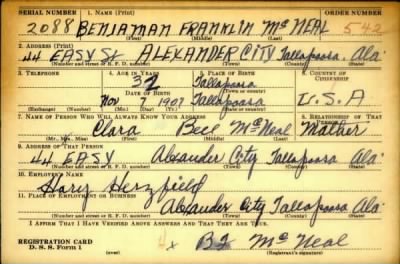 SERIAL NUMBER 1. NAME (Print) ORDER NUMBER
2088 BENJAMAN FRANKLIN McNEAL 542
(First) (Middle) (Last)
2. ADDRESS (Print)
44 EASY St ALEXANDER CITY Tallapoosa, Ala
(Number and street or R. F. D. number) (Town) (County) (State)
3. TELEPHONE 4. AGE IN YEARS 5. PLACE OF BIRTH 6. COUNTRY OF CITIZENSHIP
32 Tallapoosa
DATE OF BIRTH
Nov 7 1907 Tallapoosa U.S.A
(Exchange) (Number) (Mo.) (Day) (Yr.) (State or country)
7. NAME OF PERSON WHO WILL ALWAYS KNOW YOUR ADDRESS 8. RELATIONSHIP OF THAT PERSON
Clara Bell McNeal Mother
(Mr., Mrs., Miss) (First) (Middle) (Last)
9. ADDRESS OF THAT PERSON
44 EASY Alexander City Tallapoosa Ala
(Number and street or R. F. D. number) (Town) (County) (State)
10. EMPLOYER'S NAME
Hary Herzfield
11. PLACE OF EMPLOYMENT OR BUSINESS
Alexander City Tallapoosa Ala
(Number and street or R. F. D. number) (Town) (County) (State)
I AFFIRM THAT I HAVE VERIFIED ABOVE ANSWERS AND THAT THEY ARE TRUE.
REGISTRATION CARD
D. S. S. Form 1 x B F McNeal
(over) (Registrant's signature)